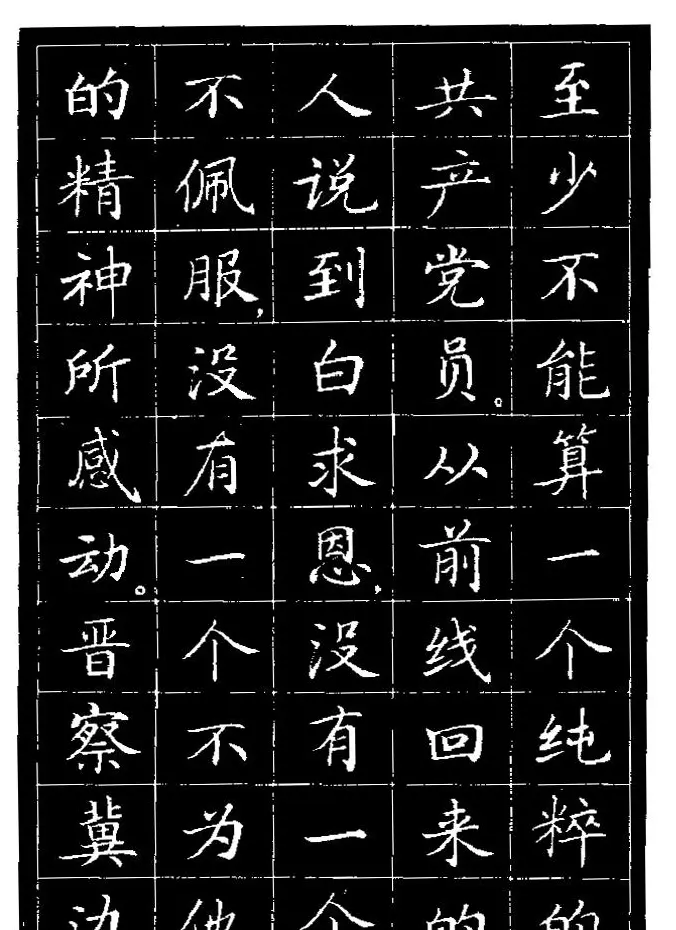 至少不能算一个纯粹的
共产党员。从前线回来的
人说到白求恩,没有一个
不佩服,没有一个不为他
的精神所感动。晋察冀边